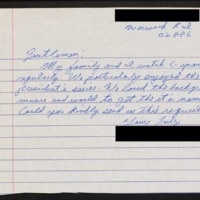 Warwick R.I.
02886
Gentlemen:
My family and I watch C-span
regularly. We particularly enjoyed the
president's series. We loved the backgr
music and would to get the it's name
Could you kindly send us this request
Yours Truly